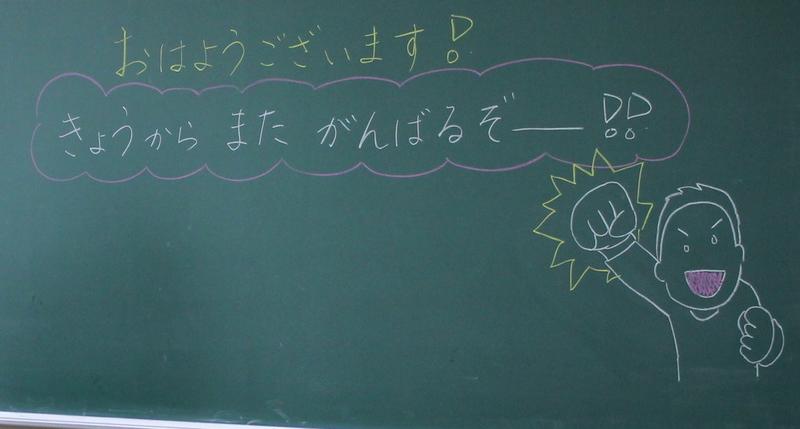 おはようございます！
きょうから また がんばるぞ――！！